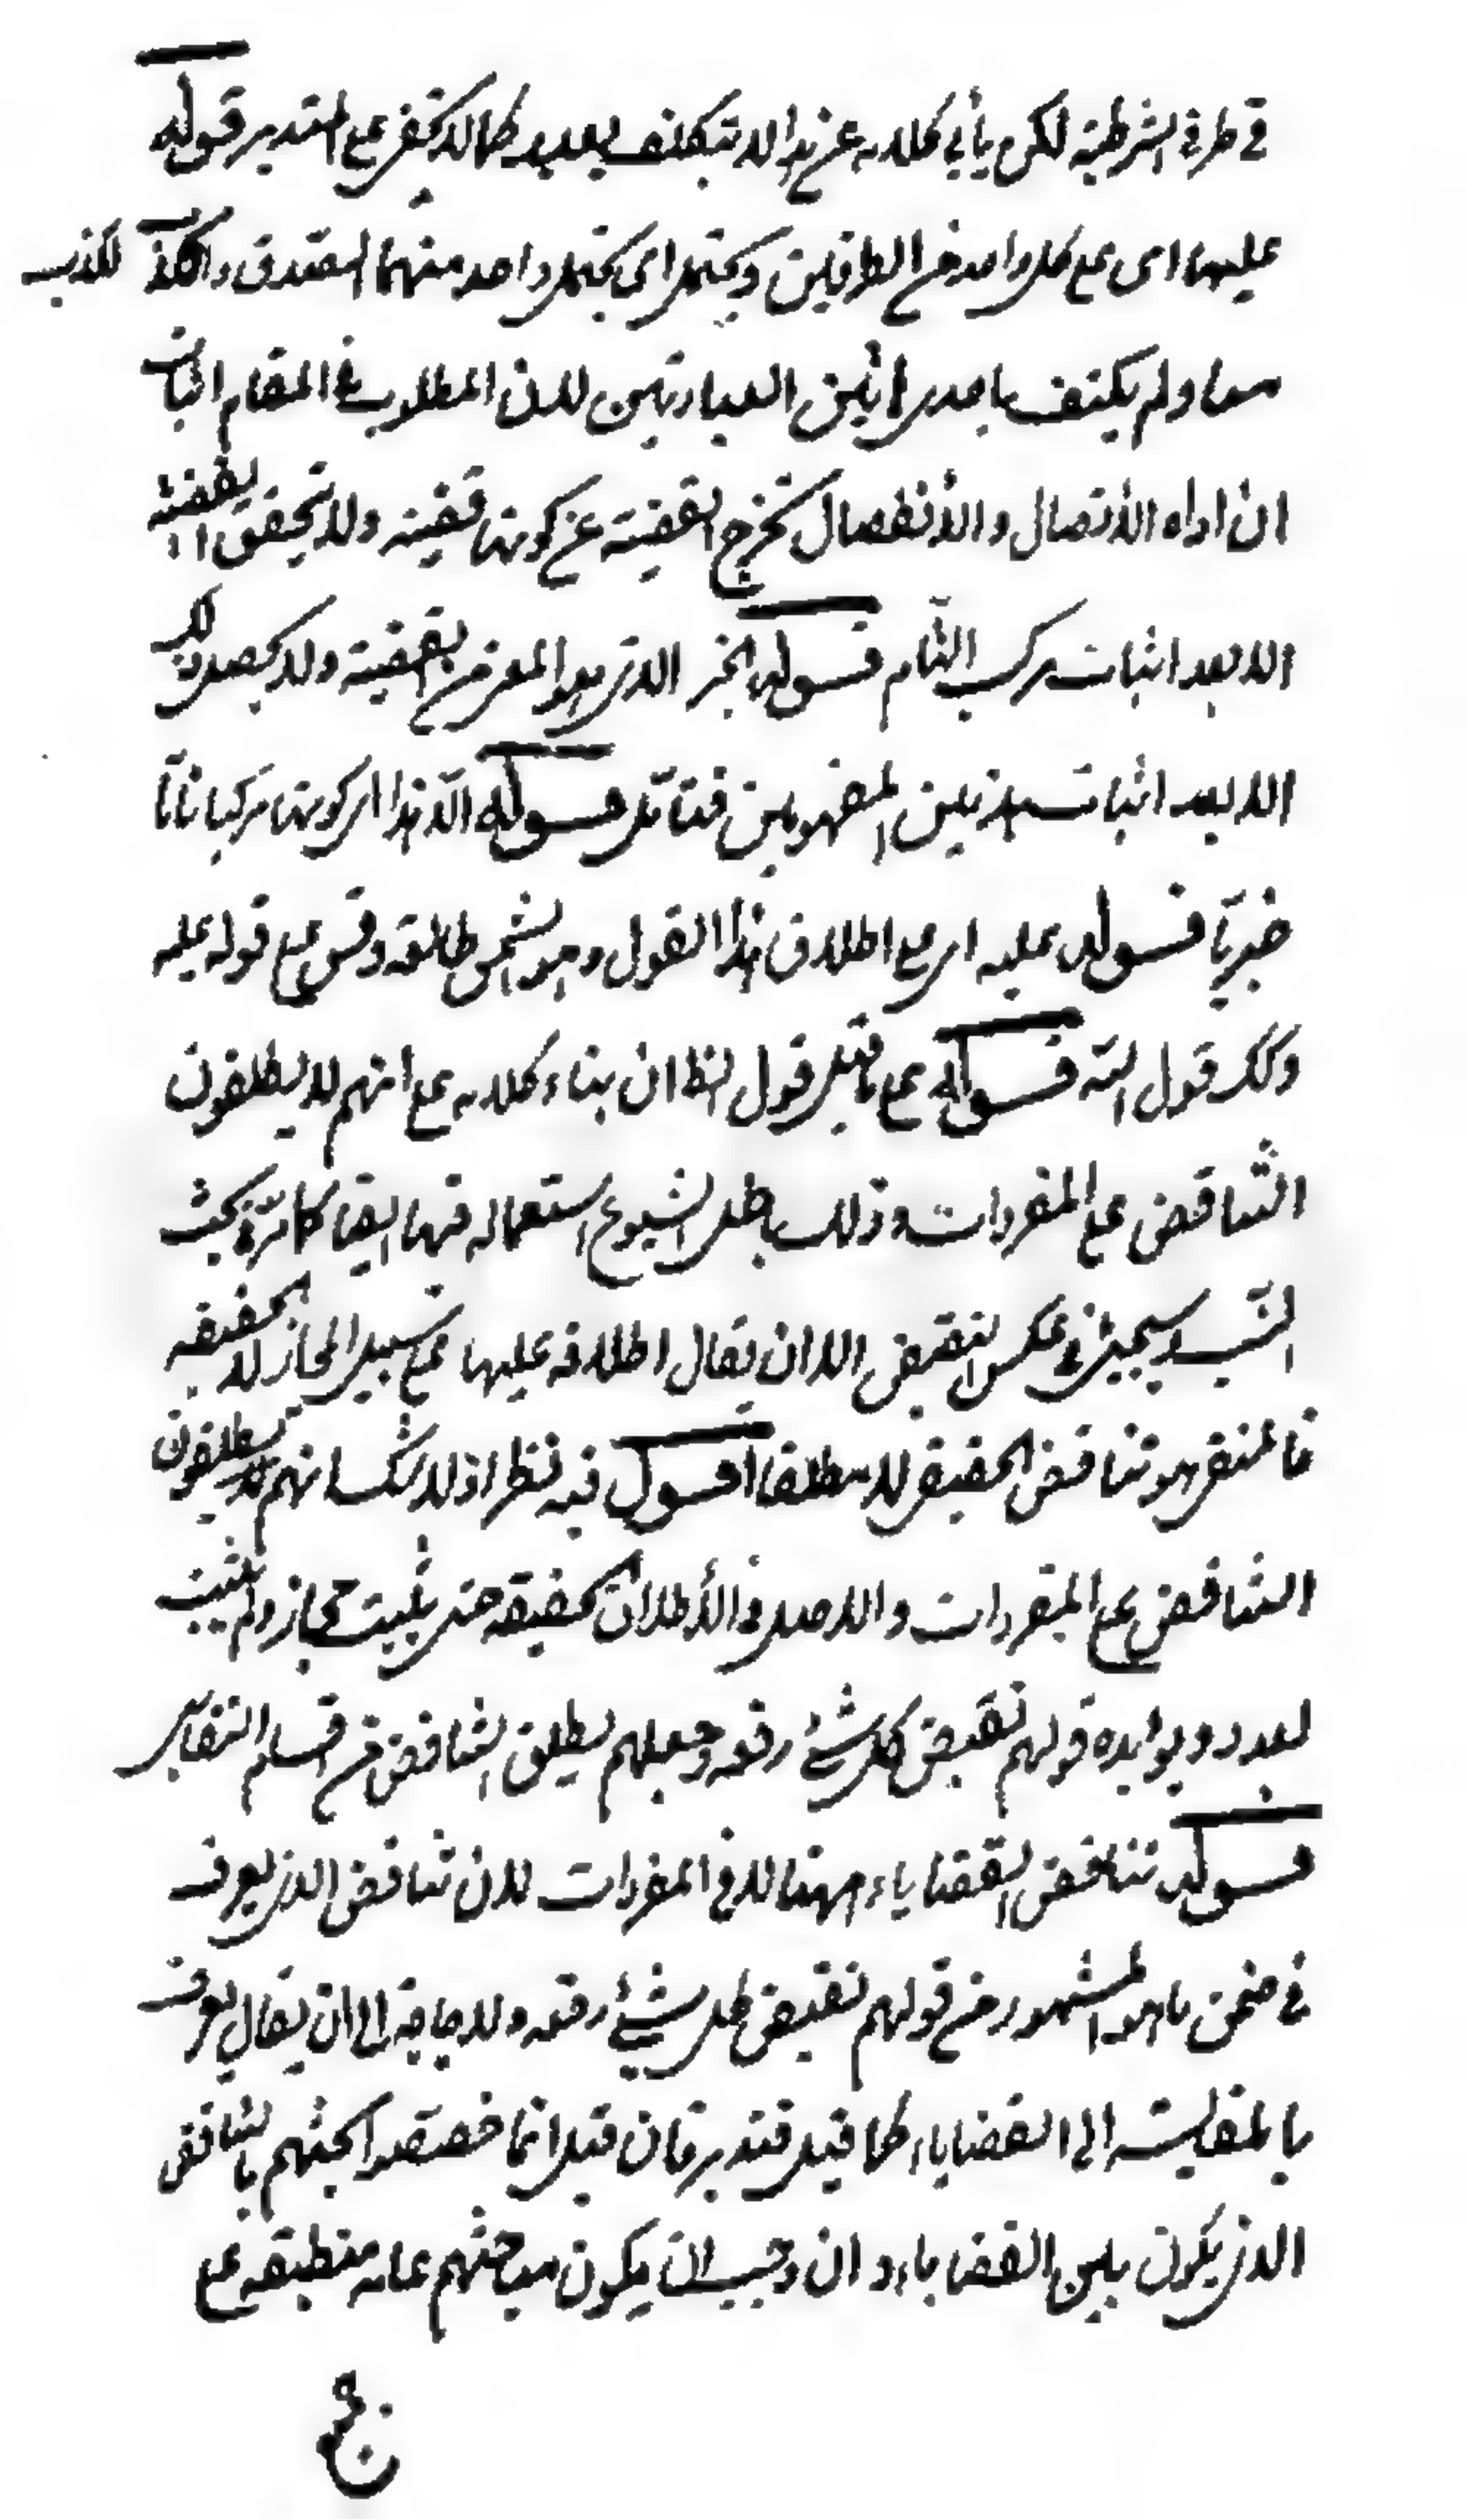 في طرفي الشرطية لكن يأبى كلامه عن هذا الا بتكلف بعيد كما لا يخفى على المتدبر قوله
عليهما اى على كل واحد من الطرفين ويحتمل اى يحتمل واحد منهما الصدق والكذب
معا ولم يكتف باحدى هاتين العبارتين لان المطلوب في المقام اثبات
ان اداة الاتصال والانفصال تخرج القضية عن كونها قضية ولا يتحقق القضية
الا بعد اثبات مركب التام قوله الخبر الذى هو المعرف بقضية ولا يحصل ذلك
الا بعد اثبات هذين المفهومين فتأمل قوله الا هذا اى كونها مركبا تاما
خبريا قوله عليه اى على اطلاق هذا القول وهو الشمس طالعة وقس على قوله عليه
وكذا قول الشه قوله على ما قيل قول لنظا ان بناء كلامه على انهم لا يطلقون
التناقض على المفردات وذلك باطل لشيوع استعماله فيها ايضا كما مر في بحث
النسب وسيجيئ في عكس النقيض الا ان يقال اطلاقه عليها على سبيل المجاز لا الحقيقه
فالمنفى هو تناقض الحقيقى لا مطلقا اقول فيه نظر اذ لا شك انهم يطلقون
التناقض على المفردات والاصل في الأطلاق الحقيقة حتى يثبت مجاز ولم يثبت
بعد ويؤيده قولهم نقيض كل شئ رفعه وجعلهم يطلق التناقض من قسم التقابل
قوله تناقض القضايا ههنا لا في المفردات لان تناقض الذى يعرف
في ضمن ما هو المشهور من قولهم نقيض كل شيئ رفعه ولا حاجة الى ان يقال يعرف
بالمقايسة الى القضايا كما قيل فتدبر فان قيل انما خصصوا بحثهم بالتناقض
الذى يكون بين القضايا وان وجب ان يكون مباحثهم عامه منطبقة على